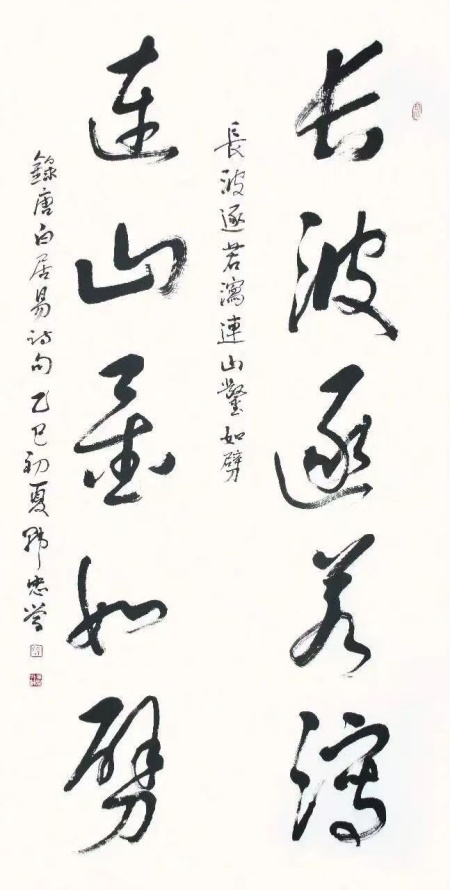 长波逐若瀉
長波逐若瀉連山鑿如劈
連山鑿如劈
錄唐白居易诗句 乙巳初夏 韩忠